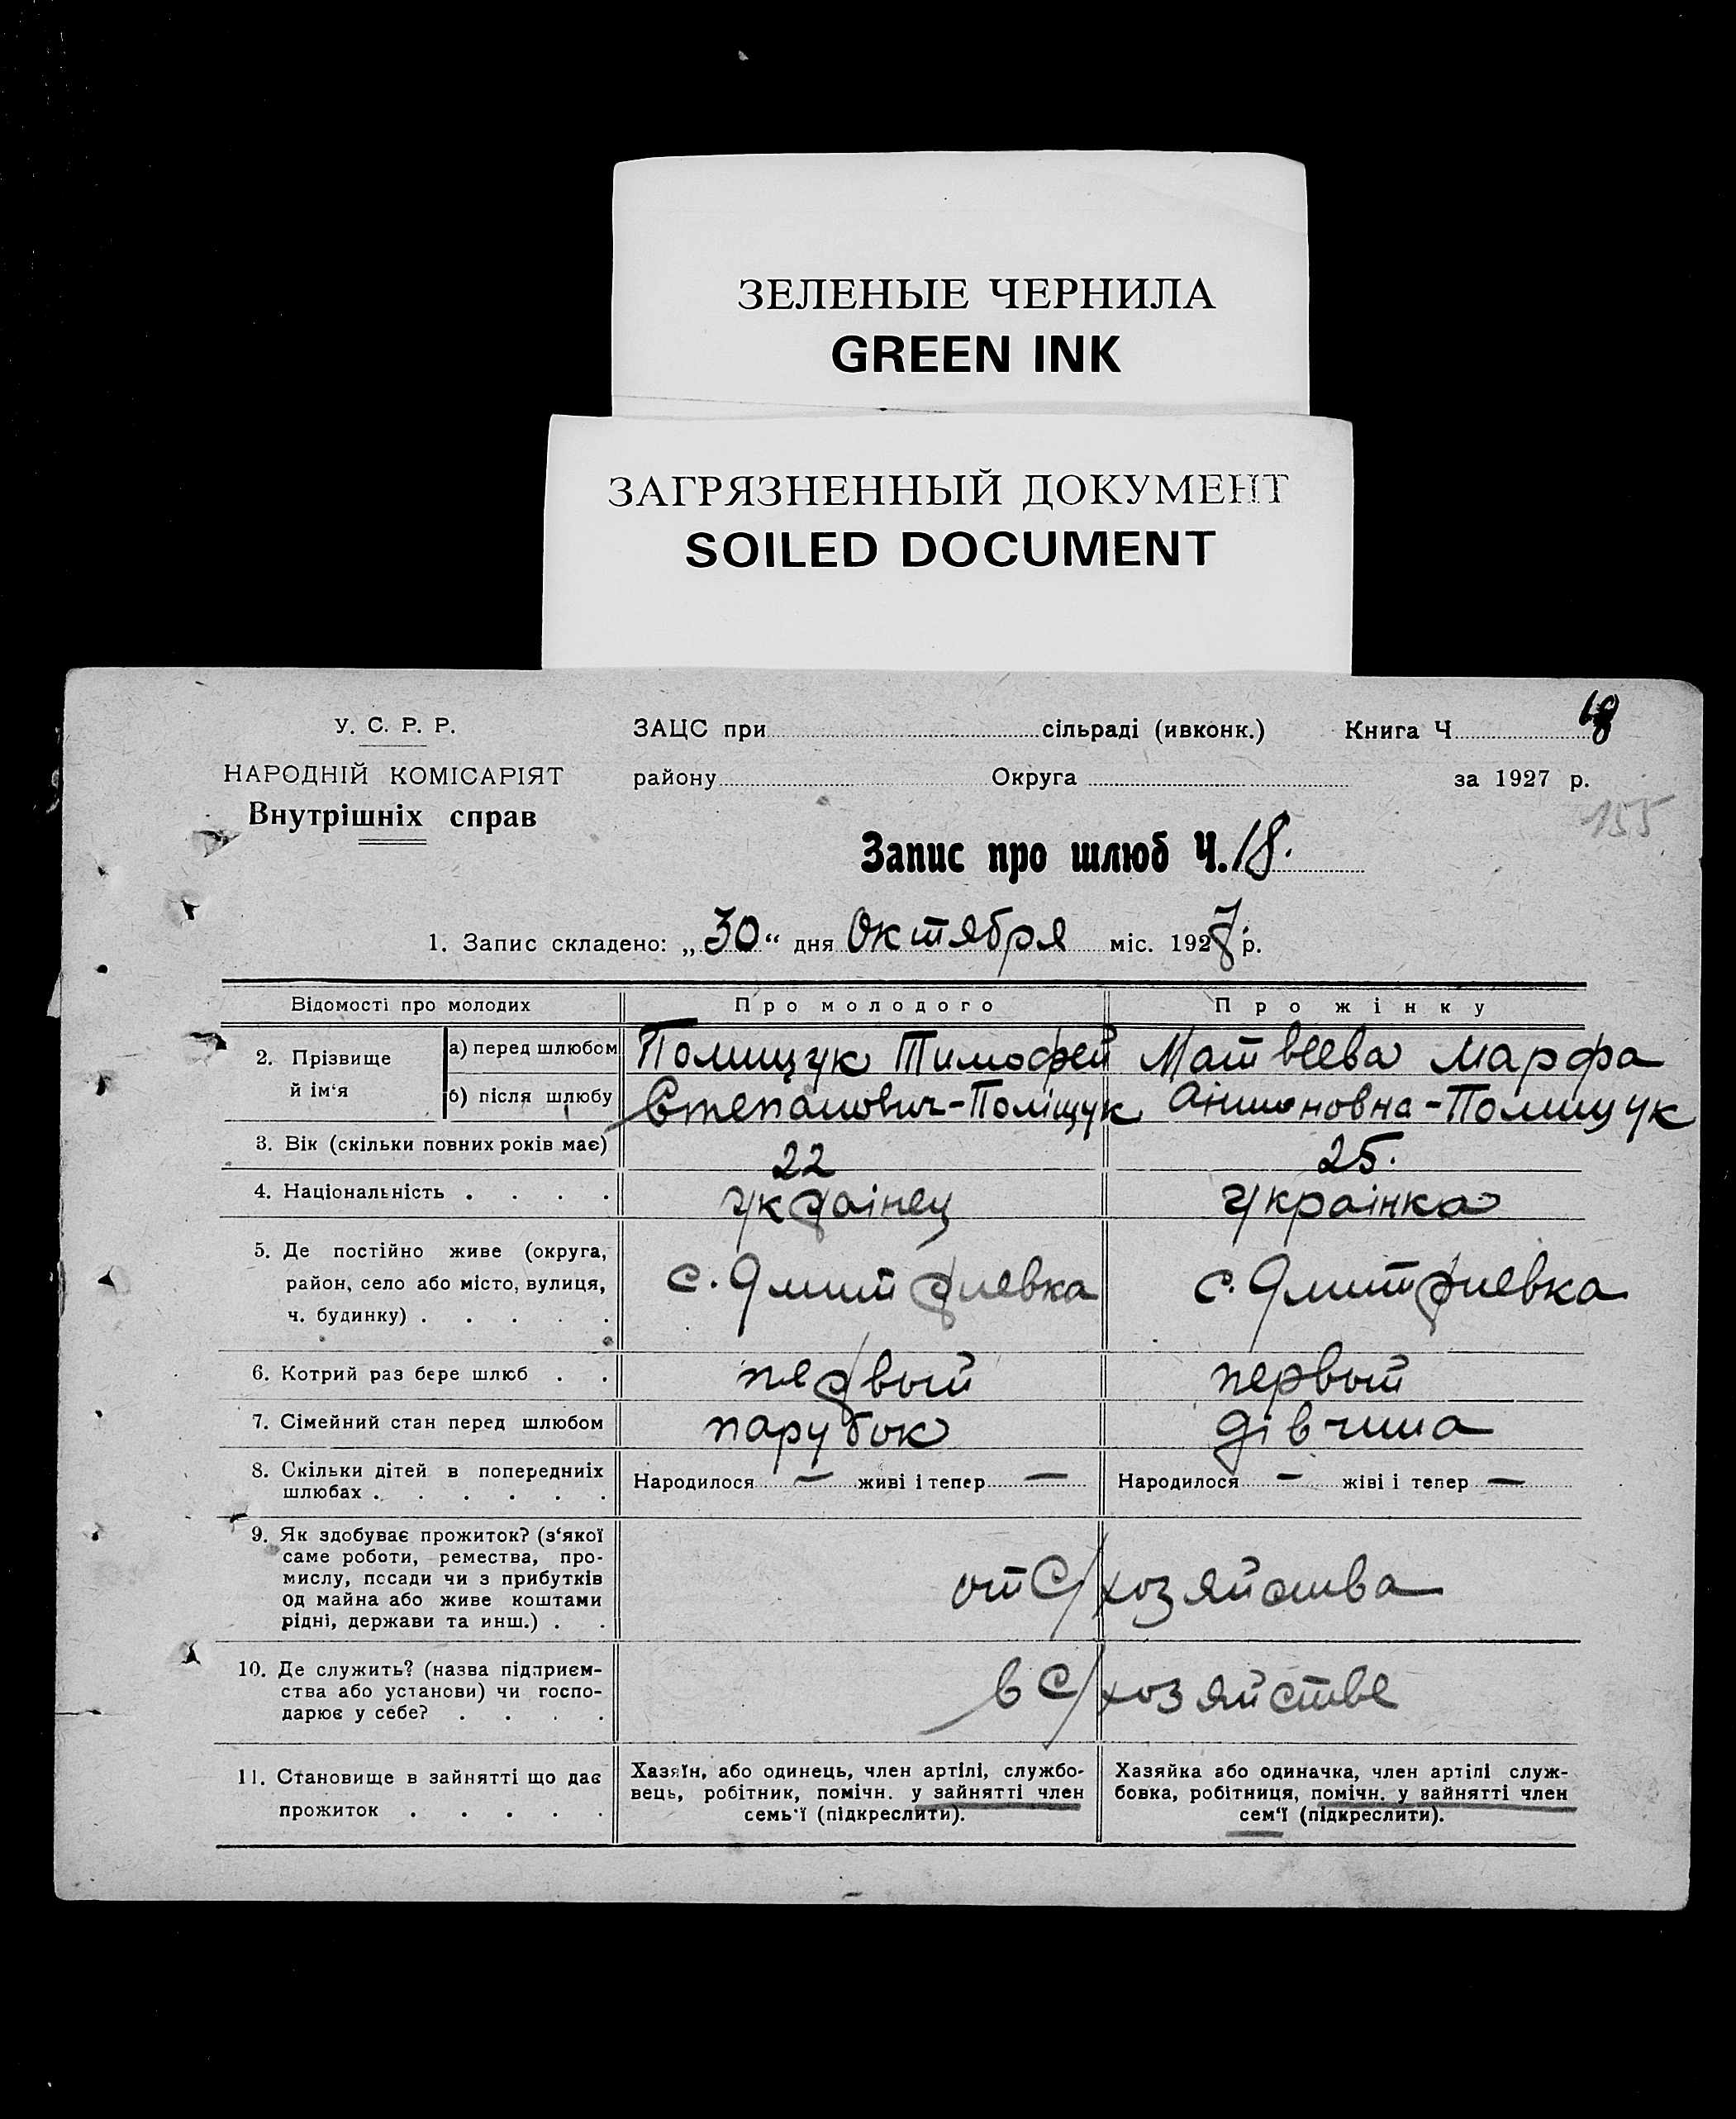 ЗЕЛЕНЫЕ ЧЕРНИЛА
GREEN INK
ЗАГРЯЗНЕННЫЙ ДОКУМЕНТ
SOILED DOCUMENT
У. С. Р. Р. ЗАЦС при сільраді (ивконк.) Книга Ч
НАРОДНІЙ КОМІСАРІЯТ району Округа за 1927 р.
Внутрішніх справ
155
Запис про шлюб Ч. 18.
1. Запис складено: „30“ дня Октября міс. 1927 р.
Відомості про молодих Про молодого Про жінку
2. Прізвище й ім‘я а) перед шлюбом Полищук Тимофей Матвеева Марфа
б) після шлюбу Степанович-Поліщук Антоновна-Полищук
3. Вік (скільки повних років має) 22 25.
4. Національність . . . . украінец украінка
5. Де постійно живе (округа,
район, село або місто, вулиця, с. Дмитриевка с. Дмитриевка
ч. будинку) . . . . .
6. Котрий раз бере шлюб . . первый первый
7. Сімейний стан перед шлюбом парубок дівчина
8. Скільки дітей в попередниіх Народилося — живі і тепер — Народилося — жіві і тепер —
шлюбах . . . . . .
9. Як здобуває прожиток? (з‘якої
саме роботи, ремества, про-
мислу, посади чи з прибутків от С/хозяйства
од майна або живе коштами
рідні, держави та инш.) . .
10. Де служить? (назва підприєм-
ства або установи) чи госпо- в С/хозяйстве
дарює у себе? . . . .
11. Становище в зайнятті що дає прожиток . . . . .
Хазяїн, або одинець, член артілі, службо-
вець, робітник, помічн. у зайнятті член
семь‘ї (підкреслити).
Хазяйка або одиначка, член артілі служ-
бовка, робітниця, помічн. у зайнятті член
сем‘ї (підкреслити).